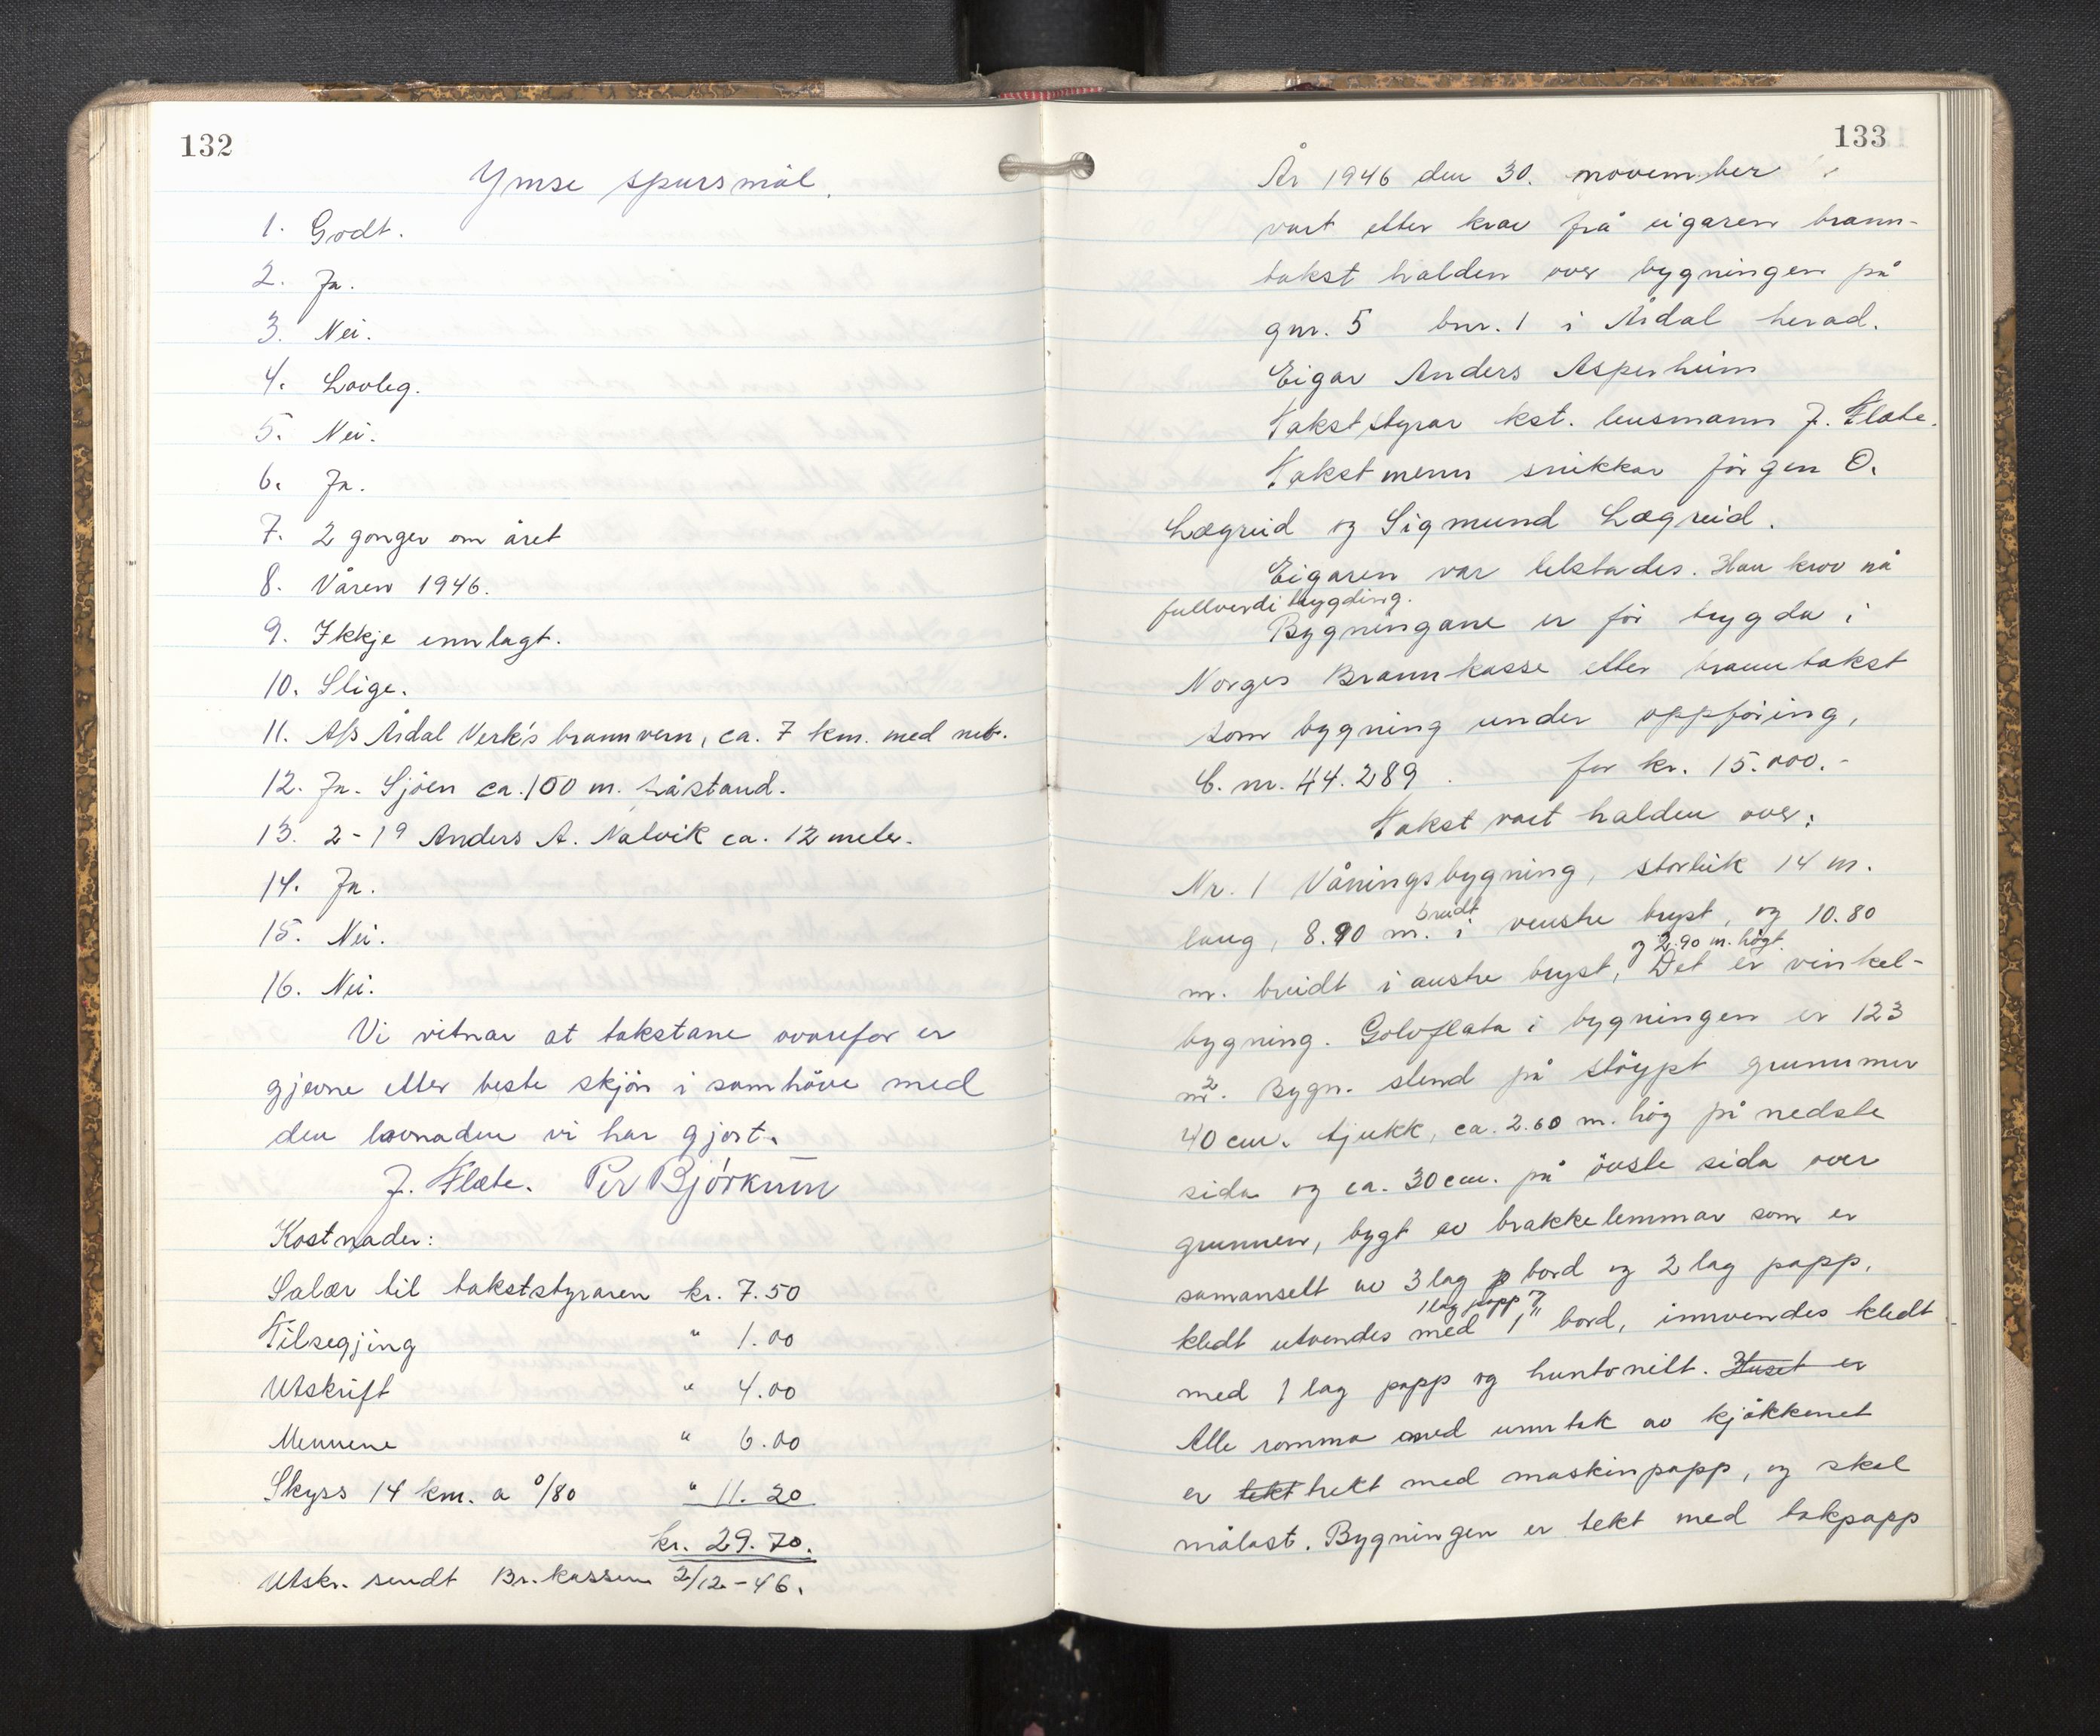 132
Ymse spursmål.
1. Godt.
2. Ja.
3. Nei.
4. Lovleg.
5. Nei.
6. Ja.
7. 2 gonger om året
8. Våren 1946.
9. Ikkje innlagt.
10. Stige.
11. A/s Årdal Verk's brannvern, ca. 7 km. med
12. Ja. Sjöen ca. 100 m. fråstand.
13. 2-19 Anders A. Nalvik ca. 12 meter.
14. Ja.
15. Nei.
16. Nei.
Vi vitnar at takstane ovanfor er
gjevne etter beste skjön i samhöve med
den lovnaden vi har gjort.
J. Flæte. Per Björkum
Kostnader:
Salær til takststyraren kr. 7.50
Tilsegjing " 1.00
Utskrift " 4.00
Mennene " 6.00
Skyss 14 km. a 0/80 " 11.20
kr. 29.70.
Utskr. sendt Br.kassen 2/12-46.
133
År 1946 den 30. november
vart etter krav frå eigaren brann-
takst halden over bygningen på
gnr. 5 bnr. 1 i Årdal herad.
Eigar Anders Asperheim
Takststyrar kst. lensmann J. Flæte.
Takstmenn snikkar Jörgen O.
Lægreid og Sigmund Lægreid.
Eigaren var tilstades. Han krov nå
fullverdi trygding.
Bygningane er för trygda i
Norges Brannkasse etter branntakst
som bygning under oppföring,
C. nr. 44.289. for kr. 15.000.-
Takst vart halden over:
Nr. 1 Våningsbygning, storleik 14 m.
breidt
lang, 8.90 m. i venstre bryst, og 10.80
og 2.90 m. högt.
m. breidt i austre bryst, Det er vinkel-
bygning. Golvflata i bygningen er 123
m². Bygn. stend på stöypt grunnmur
40 cm. tjukk, ca. 2.60 m. hög på nedste
sida og ca. 30 cm. på övste sida over
grunnen, bygt av brakkelemmar som er
samansett av 3 lag bord og 2 lag papp,
1 lag papp og
kledt utvendes med 1" bord, innvendes kledt
med 1 lag papp og huntonitt. Huset er
Alle romma med unntak av kjökkenet
er tekt trekt med maskinpapp, og skal
målast. Bygningen er tekt med takpapp